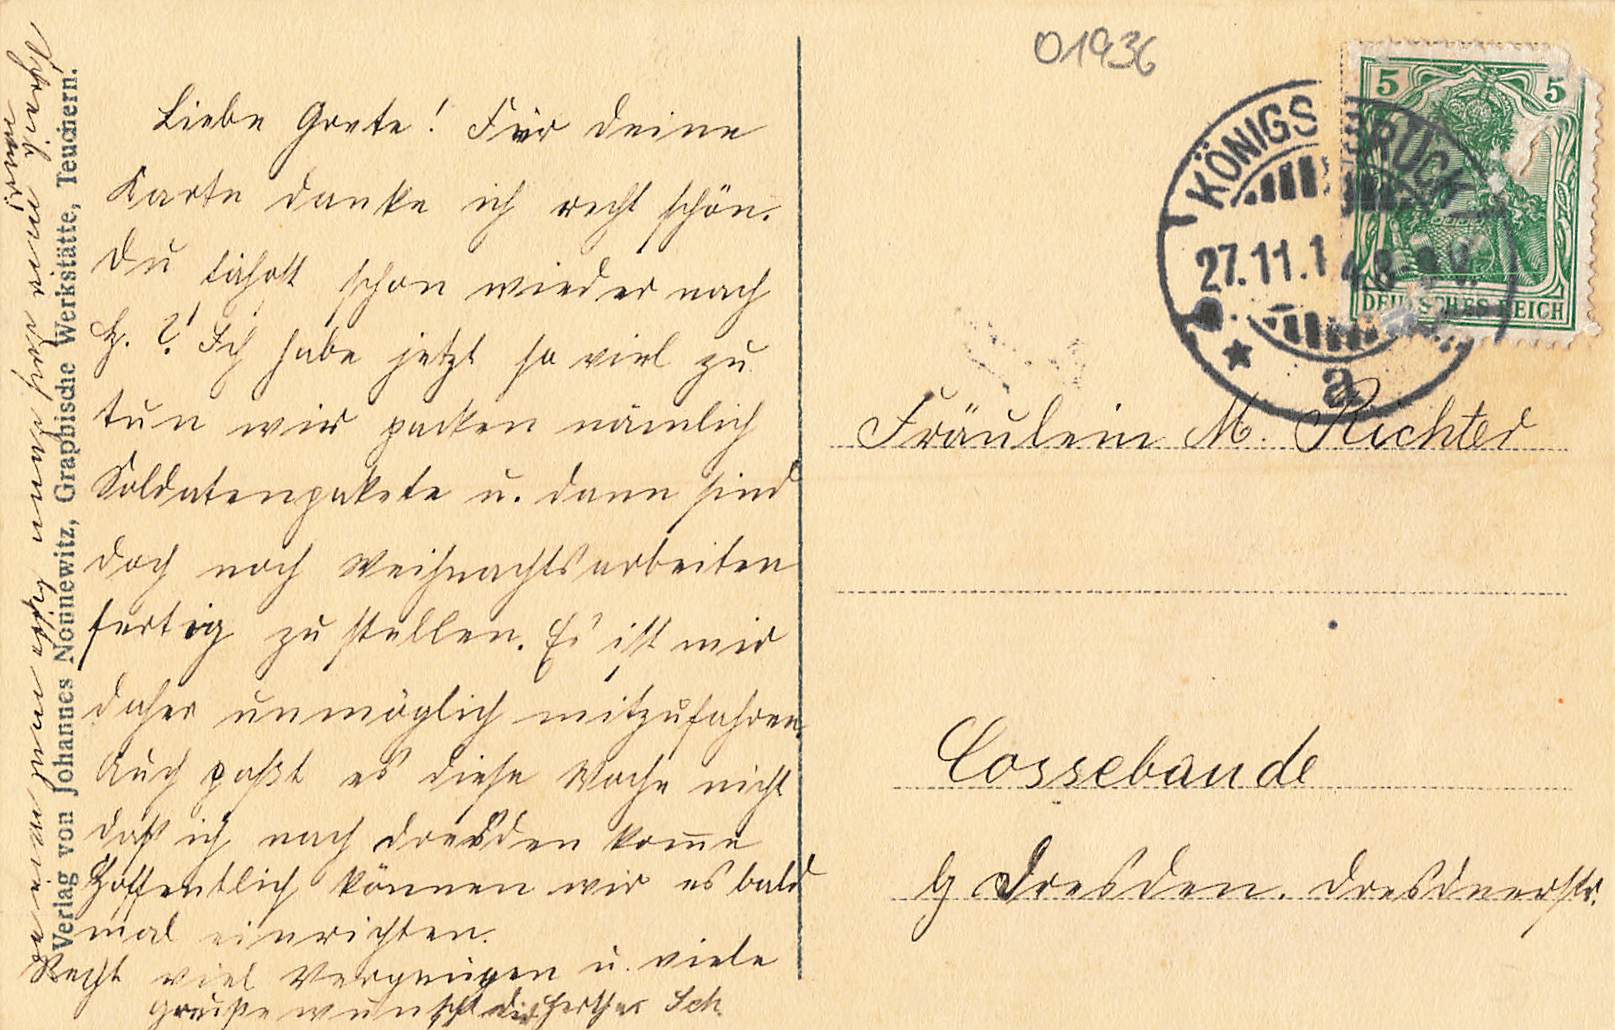 Liebe Grete! Für deine
Karte danke ich recht schön.
Du fährst schon wieder nach
H. ?! Ich habe jetzt so viel zu
tun wir packen nämlich
Soldatenpakete u. dann sind
doch noch Weihnachtsarbeiten
fertig zu stellen. Es ist mir
daher unmöglich mitzufahren.
Auch paßt es diese Woche nicht
daß ich nach Dresden komme
Hoffentlich können wir es bald
mal einrichten.
Recht viel Vergnügen u. viele
Grüße wünscht dir Herthas Sch.
Verlag von Johannes Nonnewitz, Graphische Werkstätte, Teuchern.
01936
KÖNIGSBRÜCK
27.11.14. 8-9 V.
a
5 5
DEUTSCHES REICH
Fräulein M. Richter
Cossebaude
b/ Dresden. Dresdnerstr.